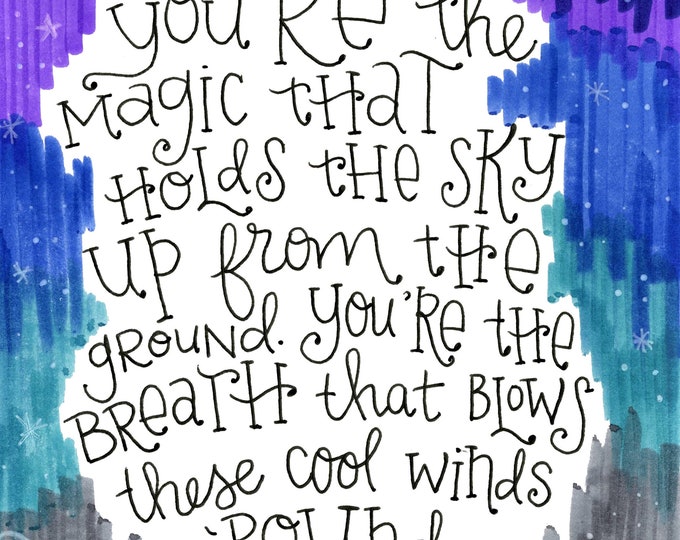 you're the
magic that
holds the sky
up from the
ground. you're the
breath that blows
these cool winds
'round